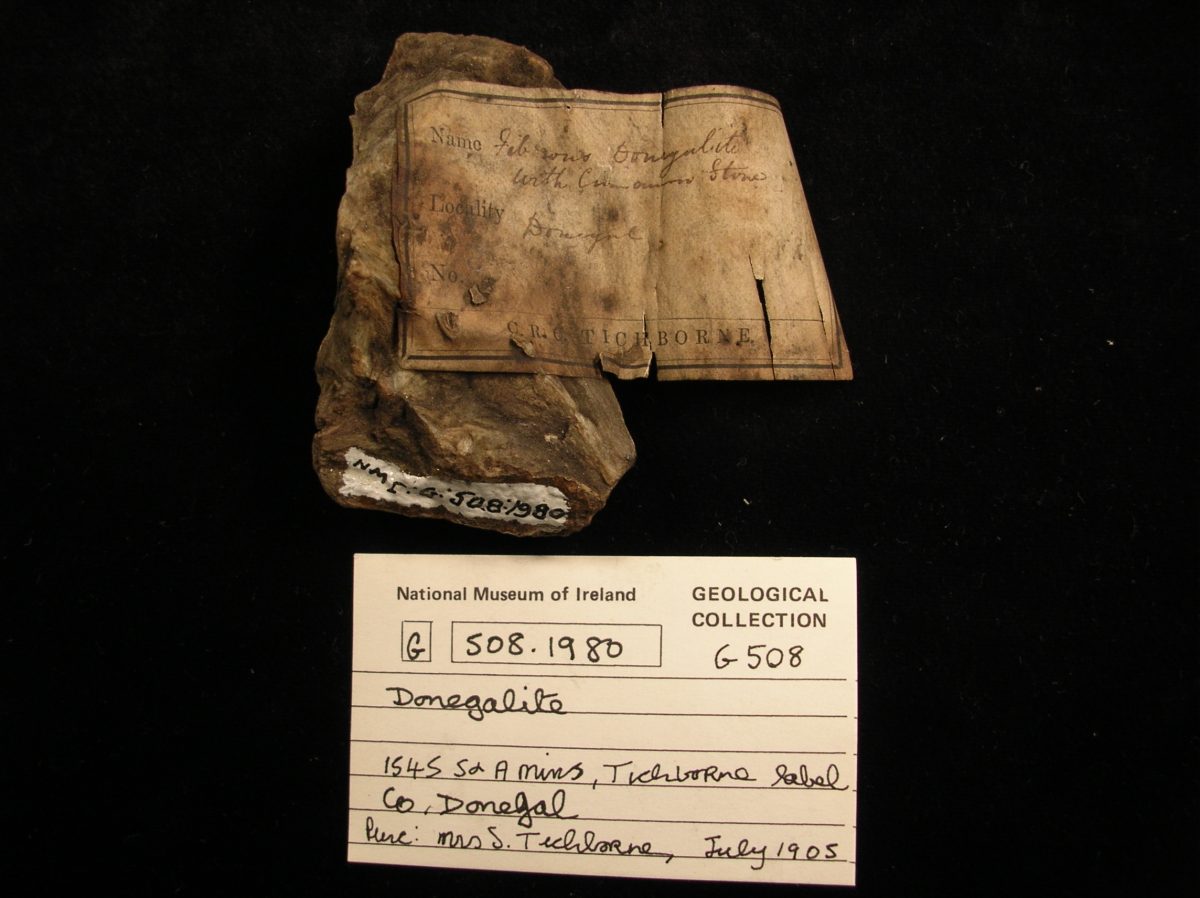 Name Fibrous Donegalite
with Cinnamon Stone
Locality Donegal
No.
C. R. C. TICHBORNE.
NMI:G:508:1980
National Museum of Ireland
GEOLOGICAL
COLLECTION
G 508.1980
G 508
Donegalite
1545 S& A Mins, Tichborne label
Co. Donegal
Purc: Mrs S. Tichborne, July 1905